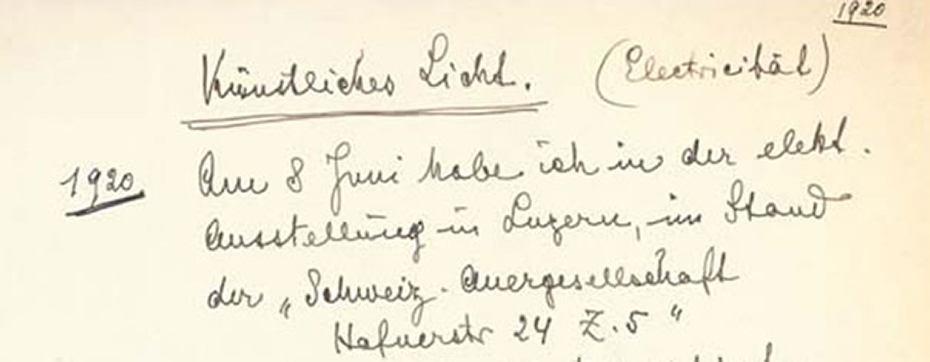 1920
Künstliches Licht. (Electricität)
1920 Am 8 Juni habe ich in der elekt.
Ausstellung in Luzern, im Stand
der „Schweiz. Auergesellschaft
Hafnerstr 24 Z. 5 "